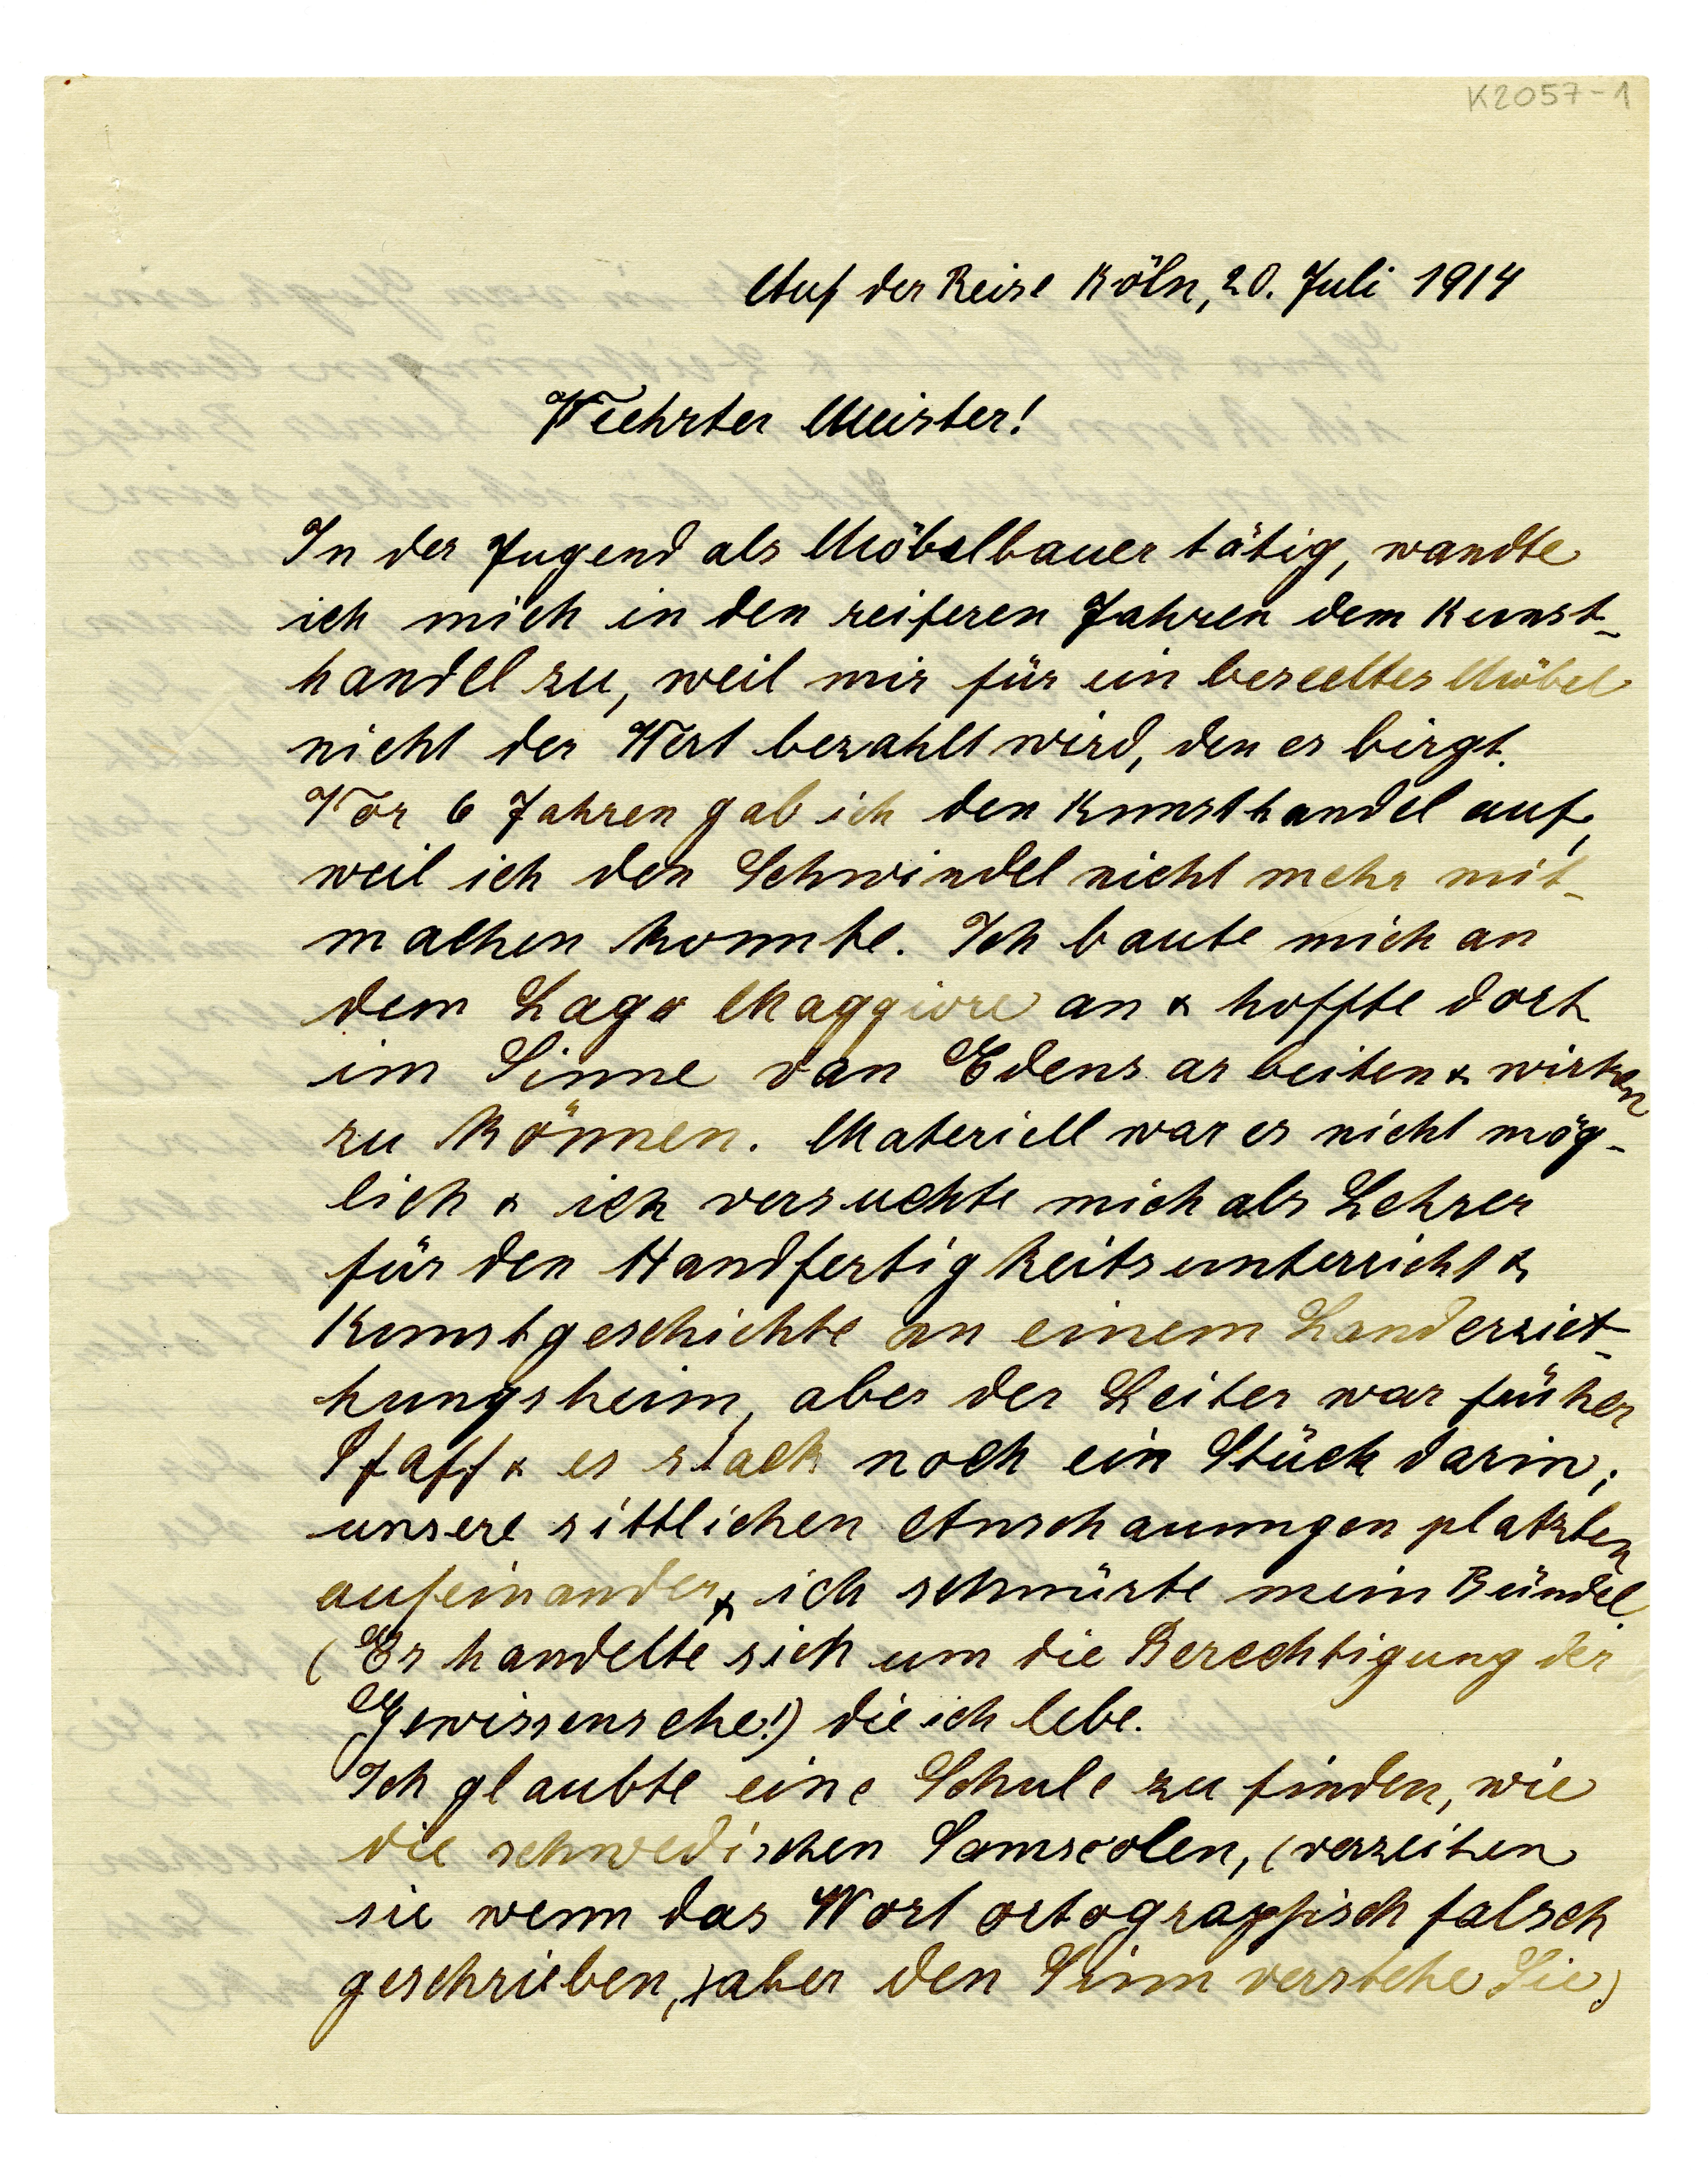 K2057-1
Auf der Reise Köln, 20. Juli 1914
Veehrter Meister!
In der Jugend als Möbelbauer tätig, wandte
ich mich in den reiferen Jahren dem Kunst-
handel zu, weil mir für ein beseeltes Möbel
nicht der Wert bezahlt wird, den es birgt.
Vor 6 Jahren gab ich den Kunsthandel auf,
weil ich den Schwindel nicht mehr mit-
machen konnte. Ich baute mich an
dem Lago Maggiore an & hoffte dort
im Sinne van Edens arbeiten & wirken
zu können. Materiell war es nicht mög-
lich & ich versuchte mich als Lehrer
für den Handfertigkeitsunterricht &
Kunstgeschichte an einem Landerzieh-
hungsheim, aber der Leiter war früher
Pfaff & es stack noch ein Stück darin;
unsere sittlichen Anschauungen platzten
aufeinander & ich schnürte mein Bündel
(Es handelte sich um die Berechtigung der
Gewissensehe!) die ich lebe.
Ich glaubte eine Schule zu finden, wie
die schwedischen Samscolen, (verzeihen
sie wenn das Wort ortographisch falsch
geschrieben,) aber den Sinn verstehe Sie)